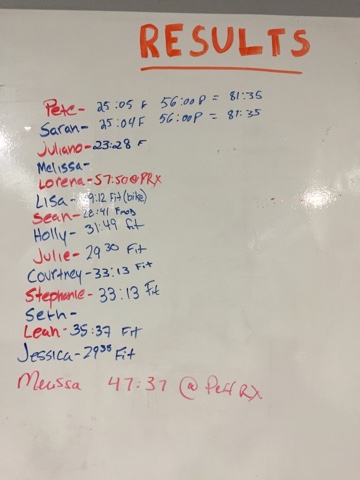 RESULTS
Pete- 25:05 F 56:00 P = 81:35
Sarah- 25:04 F 56:00 P = 81:35
Juliano- 23:28 F
Melissa-
Lorena- 57:50 @ PRX
Lisa- 9:12 Fit (bike)
Sean- 28:41
Holly- 31:49 fit
Julie- 29 30 Fit
Courtney- 33:13 Fit
Stephanie- 33:13 Fit
Seth-
Leah- 35:37 Fit
Jessica- 29 38 Fit
Melissa 47:37 @ Perf RX